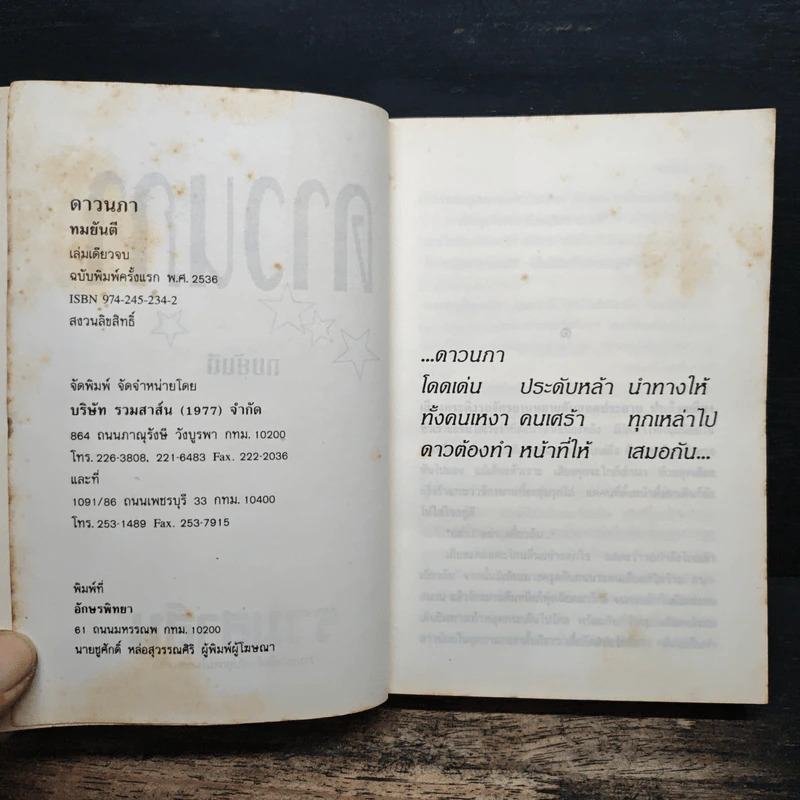 ดาวนภา
ทมยันตี
เล่มเดียวจบ
ฉบับพิมพ์ครั้งแรก พ.ศ. 2536
ISBN 974-245-234-2
สงวนลิขสิทธิ์
จัดพิมพ์ จัดจำหน่ายโดย
บริษัท รวมสาส์น (1977) จำกัด
864 ถนนภาณุรังษี วังบูรพา กทม. 10200
โทร. 226-3808, 221-6483 Fax. 222-2036
และที่
1091/86 ถนนเพชรบุรี 33 กทม. 10400
โทร. 253-1489 Fax. 253-7915
พิมพ์ที่
อักษรพิทยา
61 ถนนมหรรณพ กทม. 10200
นายชูศักดิ์ หล่อสุวรรณศิริ ผู้พิมพ์ผู้โฆษณา
...ดาวนภา
โดดเด่น ประดับหล้า นำทางให้
ทั้งคนเหงา คนเศร้า ทุกเหล่าไป
ดาวต้องทำ หน้าที่ให้ เสมอกัน...